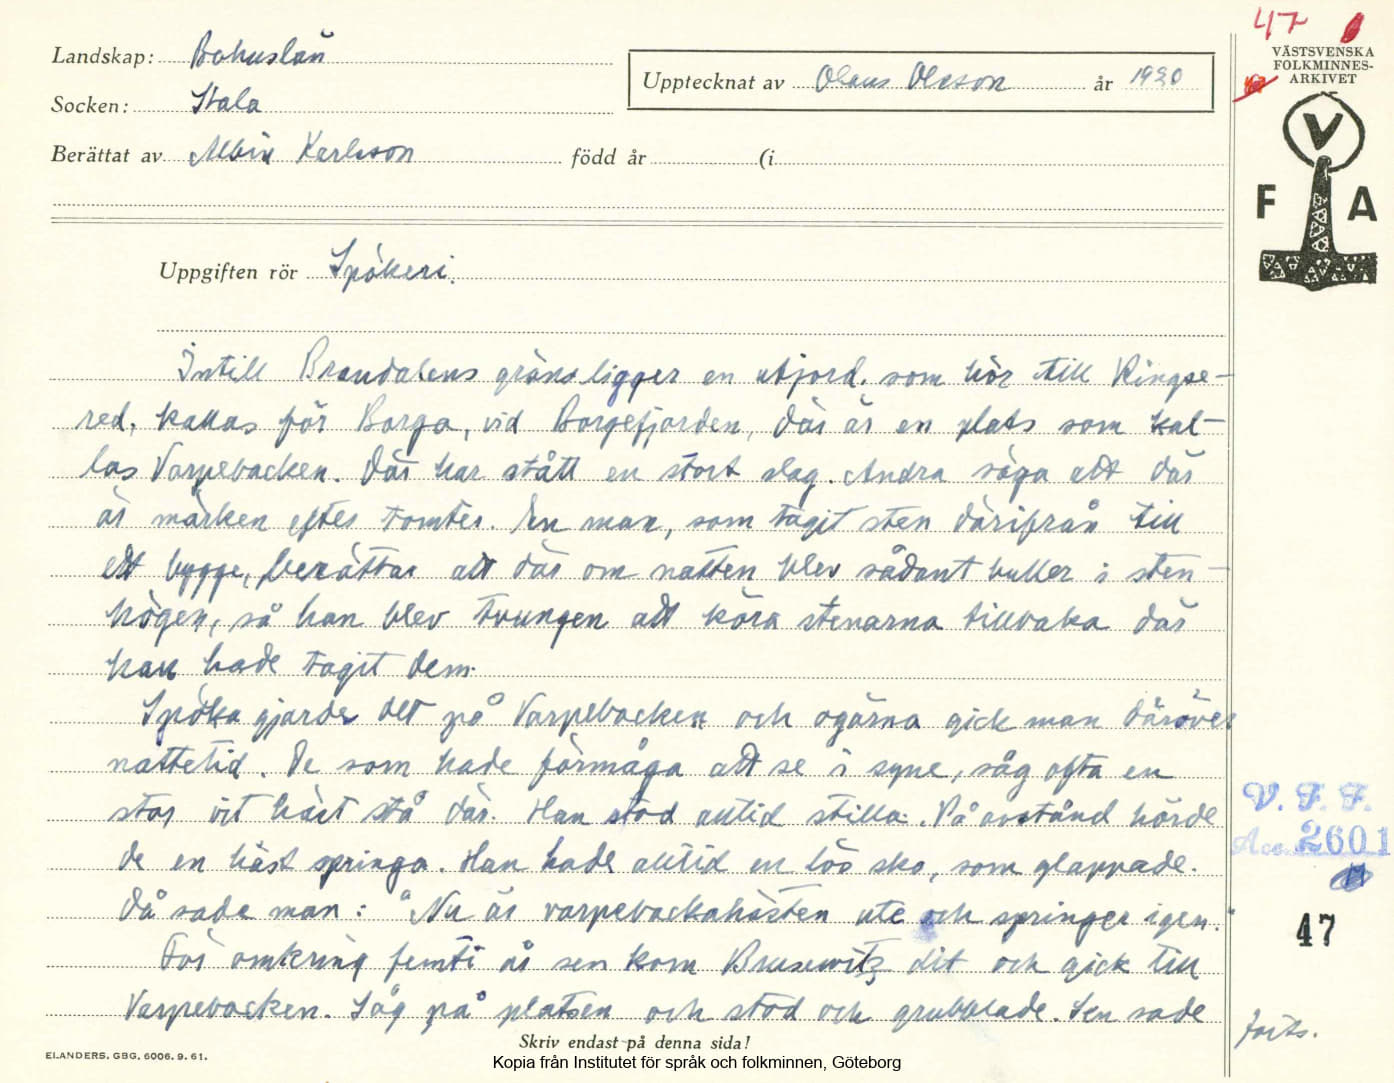 47
VÄSTSVENSKA
FOLKMINNES-
ARKIVET
V
F A
Landskap: Bohuslän
Socken: Stala
Upptecknat av Olaus Olsson år 1920
Berättat av Albin Karlsson född år (i
Uppgiften rör Spökeri.
Intill Brandalens gräns ligger en utjord, som hör till Ringse-
red, kallas för Borga, vid Borgefjorden, där är en plats som kal-
las Varpebacken. Där har stått en stort slag. Andra säga att där
är märken efter tomter. En man, som tagit sten därifrån till
ett bygge, berättar att där om natten blev sådant buller i sten-
högen, så han blev tvungen att köra stenarna tillbaka där
han hade tagit dem.
Spöka gjorde det på Varpebacken och ogärna gick man däröver
nattetid. De som hade förmåga att se i syne, såg ofta en
stor vit häst stå där. Han stod alltid stilla. På avstånd hörde
de en häst springa. Han hade alltid en lös sko, som glappade.
Då sade man: "Nu är varpebackahästen ute och springer igen."
För omkring femti år sen kom Brusewitz dit och gick till
Varpebacken. Såg på platsen och stod och grubblade. Sen sade
V. F. F.
Acc. 2601
47
forts.
Skriv endast på denna sida!
ELANDERS, GBG, 6006. 9. 61.
Kopia från Institutet för språk och folkminnen, Göteborg